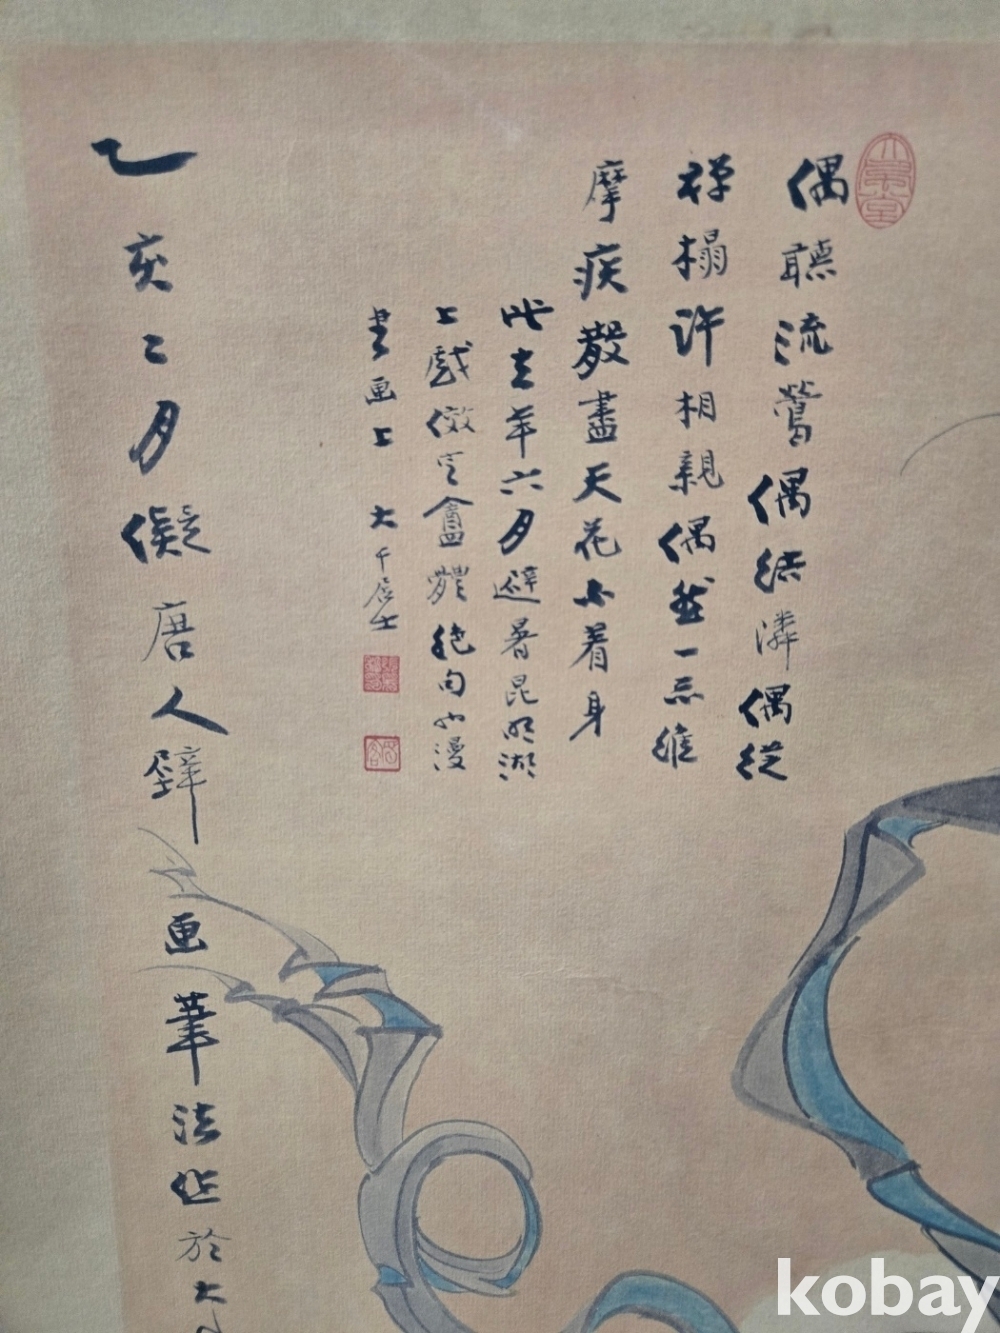 大風堂
偶聽流鶯偶結隣偶從
禪榻許相親偶然一示維
摩疾散盡天花不着身
此去年六月避暑昆明湖
上戲倣定盦體絕句也漫
書画上 大千居士
乙亥二月儗唐人壁画筆法作於大
kobay